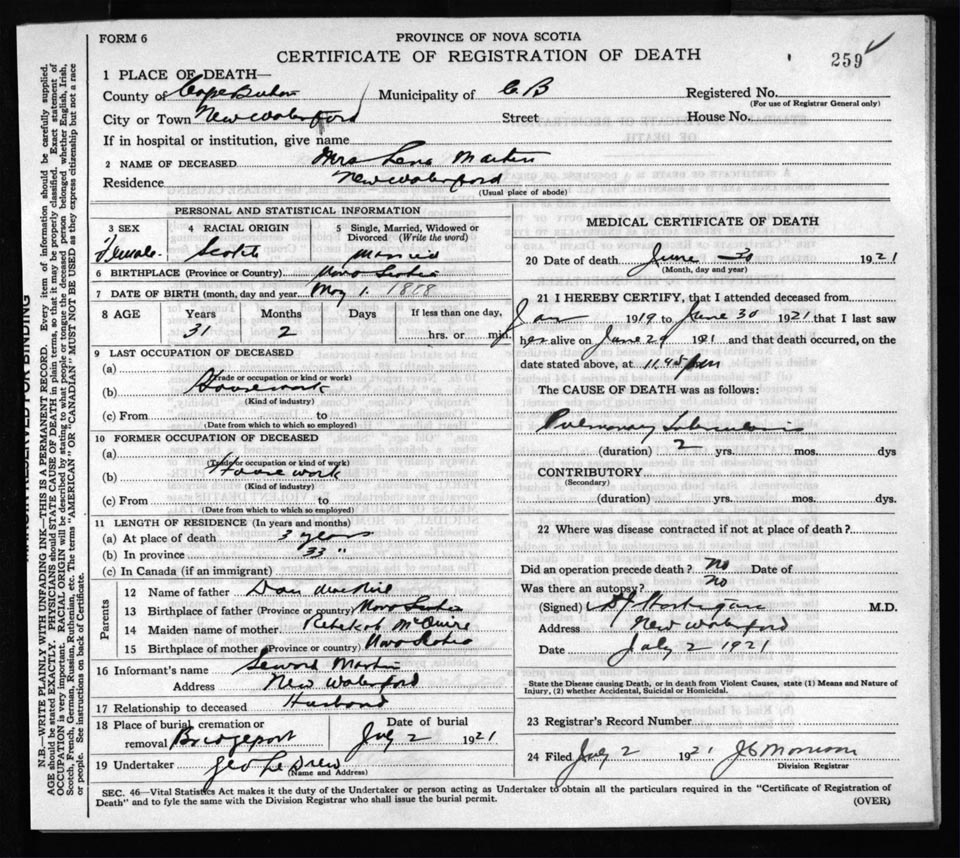 FORM 6
PROVINCE OF NOVA SCOTIA
CERTIFICATE OF REGISTRATION OF DEATH
259
1 PLACE OF DEATH—
County of Cape Breton Municipality of C B Registered No.
(For use of Registrar General only)
City or Town New Waterford Street House No.
If in hospital or institution, give name
2 NAME OF DECEASED Mrs Lena Martin
Residence New Waterford
(Usual place of abode)
PERSONAL AND STATISTICAL INFORMATION
3 SEX 4 RACIAL ORIGIN 5 Single, Married, Widowed or Divorced (Write the word)
Female Scotch Married
6 BIRTHPLACE (Province or Country) Nova Scotia
7 DATE OF BIRTH (month, day and year) May 1. 1888
8 AGE Years Months Days If less than one day,
31 2 hrs. or min.
9 LAST OCCUPATION OF DECEASED
(a)
(Trade or occupation or kind or work)
(b) Housework
(Kind of industry)
(c) From to
(Date from which to which so employed)
10 FORMER OCCUPATION OF DECEASED
(a)
(Trade or occupation or kind or work)
(b) House work
(Kind of industry)
(c) From to
(Date from which to which so employed)
11 LENGTH OF RESIDENCE (In years and months)
(a) At place of death 3 years
(b) In province 33 "
(c) In Canada (if an immigrant)
Parents
12 Name of father Dan
13 Birthplace of father (Province or country) Nova Scotia
14 Maiden name of mother Rebekah McGuire
15 Birthplace of mother (Province or country) Nova Scotia
16 Informant's name Martin
Address New Waterford
17 Relationship to deceased Husband
18 Place of burial, cremation or removal Bridgeport Date of burial July 2 1921
19 Undertaker Geo Le Drew
(Name and Address)
MEDICAL CERTIFICATE OF DEATH
20 Date of death June 30 1921
(Month, day and year)
21 I HEREBY CERTIFY, that I attended deceased from
Jan 1919 to June 30 1921 that I last saw
her alive on June 29 1921 and that death occurred, on the
date stated above, at 11.45 pm
The CAUSE OF DEATH was as follows:
Pulmonary Tuberculosis
(duration) 2 yrs. mos. dys
CONTRIBUTORY
(Secondary)
(duration) yrs. mos. dys
22 Where was disease contracted if not at place of death?
Did an operation precede death? No Date of
Was there an autopsy? No
(Signed) M.D.
Address New Waterford
Date July 2 1921
State the Disease causing Death, or in death from Violent Causes, state (1) Means and Nature of
Injury, (2) whether Accidental, Suicidal or Homicidal.
23 Registrar's Record Number
24 Filed July 2 1921 Morrison
Division Registrar
SEC. 46—Vital Statistics Act makes it the duty of the Undertaker or person acting as Undertaker to obtain all the particulars required in the "Certificate of Registration of
Death" and to fyle the same with the Division Registrar who shall issue the burial permit.
(OVER)
RESERVED FOR BINDING
N.B.—WRITE PLAINLY WITH UNFADING INK—THIS IS A PERMANENT RECORD. Every item of information should be carefully supplied.
AGE should be stated EXACTLY. PHYSICIANS should STATE CAUSE OF DEATH in plain terms, so that it may be properly classified. Exact statement of
OCCUPATION is very important. RACIAL ORIGIN will be described by stating to what people or tongue the deceased person belonged, whether English, Irish,
Scotch, French, German, Russian, Ruthenian, etc. The terms "AMERICAN" OR "CANADIAN" MUST NOT BE USED as they express citizenship but not a race
or people. See instructions on back of Certificate.